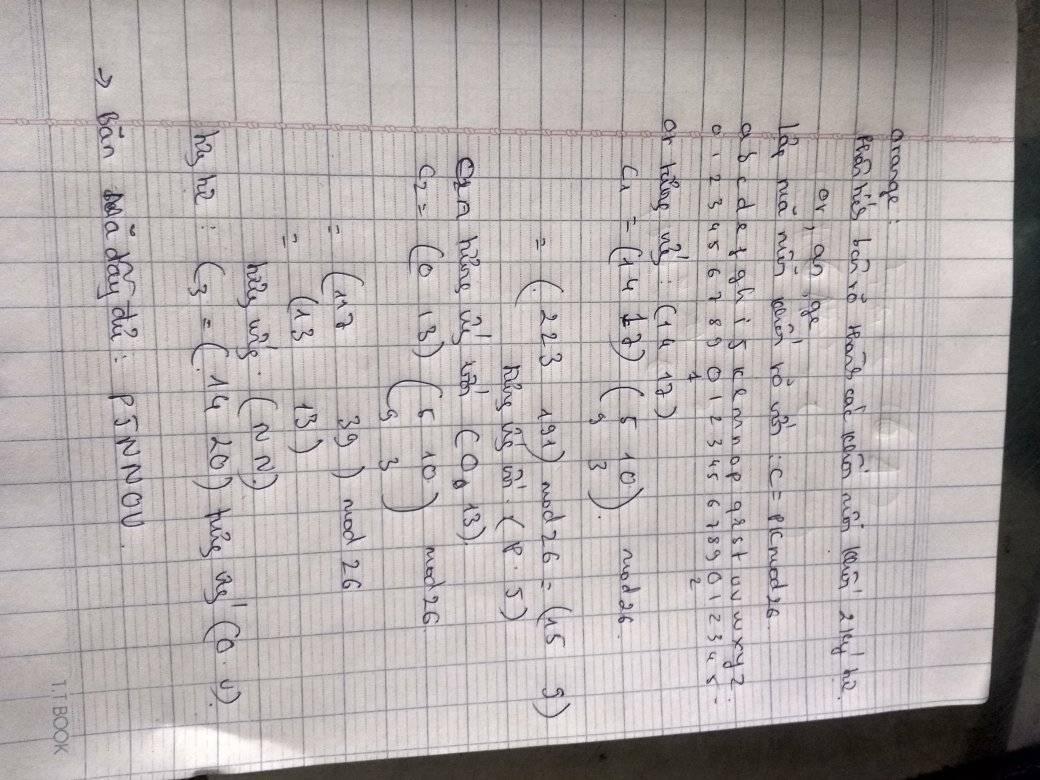 orange:
Phân tích bản rõ thành các khối mỗi khối 2 ký tự.
or, an, ge
Lập mã mỗi khối rõ với: C = PK mod 26.
a b c d e f g h i j k l m n o p q r s t u v w x y z.
0 1 2 3 4 5 6 7 8 9 0 1 2 3 4 5 6 7 8 9 0 1 2 3 4 5
1 2
or tương ứng: (14 17)
C1 = (14 17) (5 10) mod 26.
9 3
= (223 191) mod 26 = (15 9)
tương ứng với (P. J)
an tương ứng với (0, 13).
C2 = (0 13) (5 10) mod 26.
9 3
= (117 39) mod 26
= (13 13)
tương ứng. (N N.)
tương tự: C3 = (14 20) tương ứng (O. U).
→ Bản mã đầy đủ: PJNNOU.
T.T BOOK